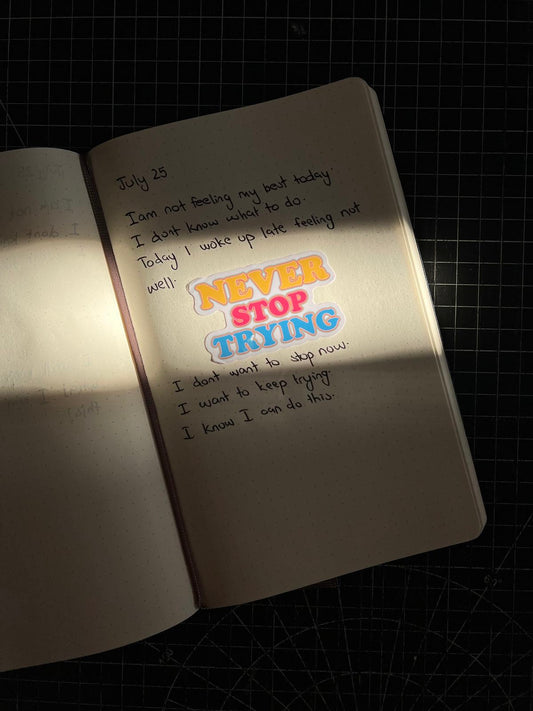 July 25
I am not feeling my best today.
I dont know what to do.
Today I woke up late feeling not
well.
NEVER
STOP
TRYING
I dont want to stop now.
I want to keep trying.
I know I can do this.